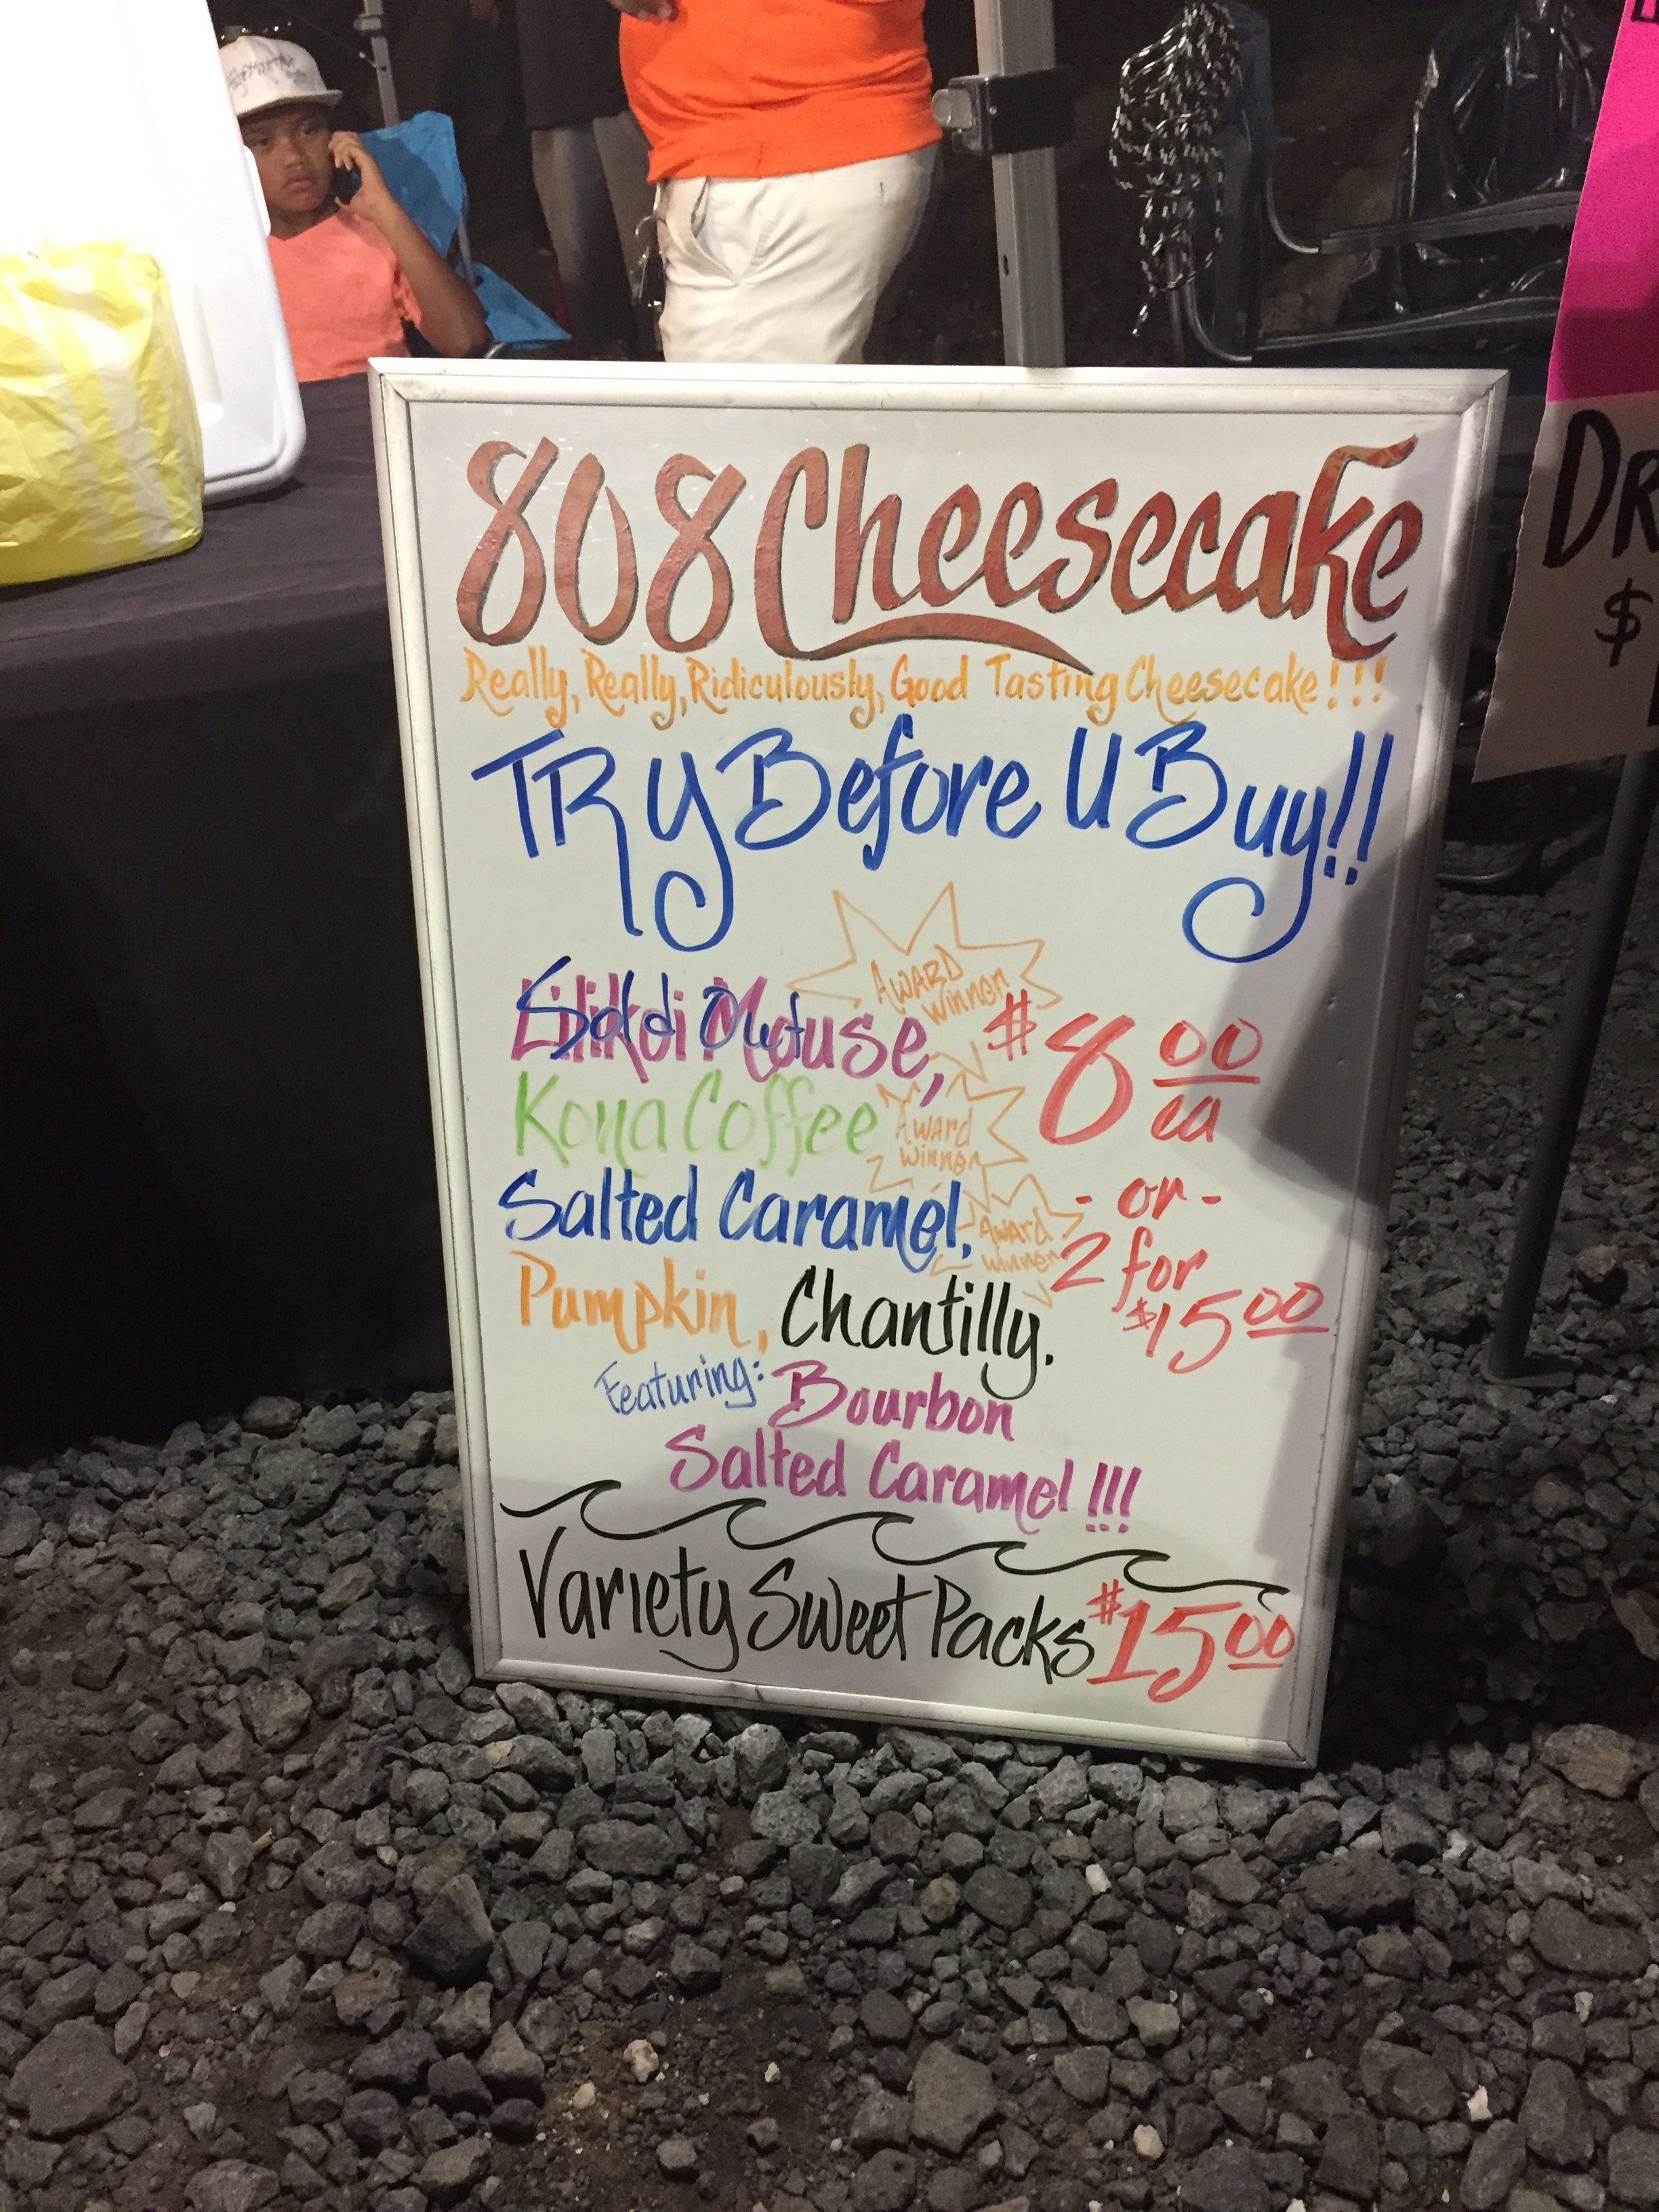 808 Cheesecake
Really, Really, Ridiculously, Good Tasting Cheesecake!!!
TRy Before U Buy!!
AWARD
Winner
Lilikoi Mouse,
Sold Out
$8.00
ea
Kona Coffee
Award
Winner
Salted Caramel,
Award
Winner
- or -
2 for
$15.00
Pumpkin, Chantilly.
Featuring: Bourbon
Salted Caramel!!!
Variety Sweet Packs $15.00
DR
$